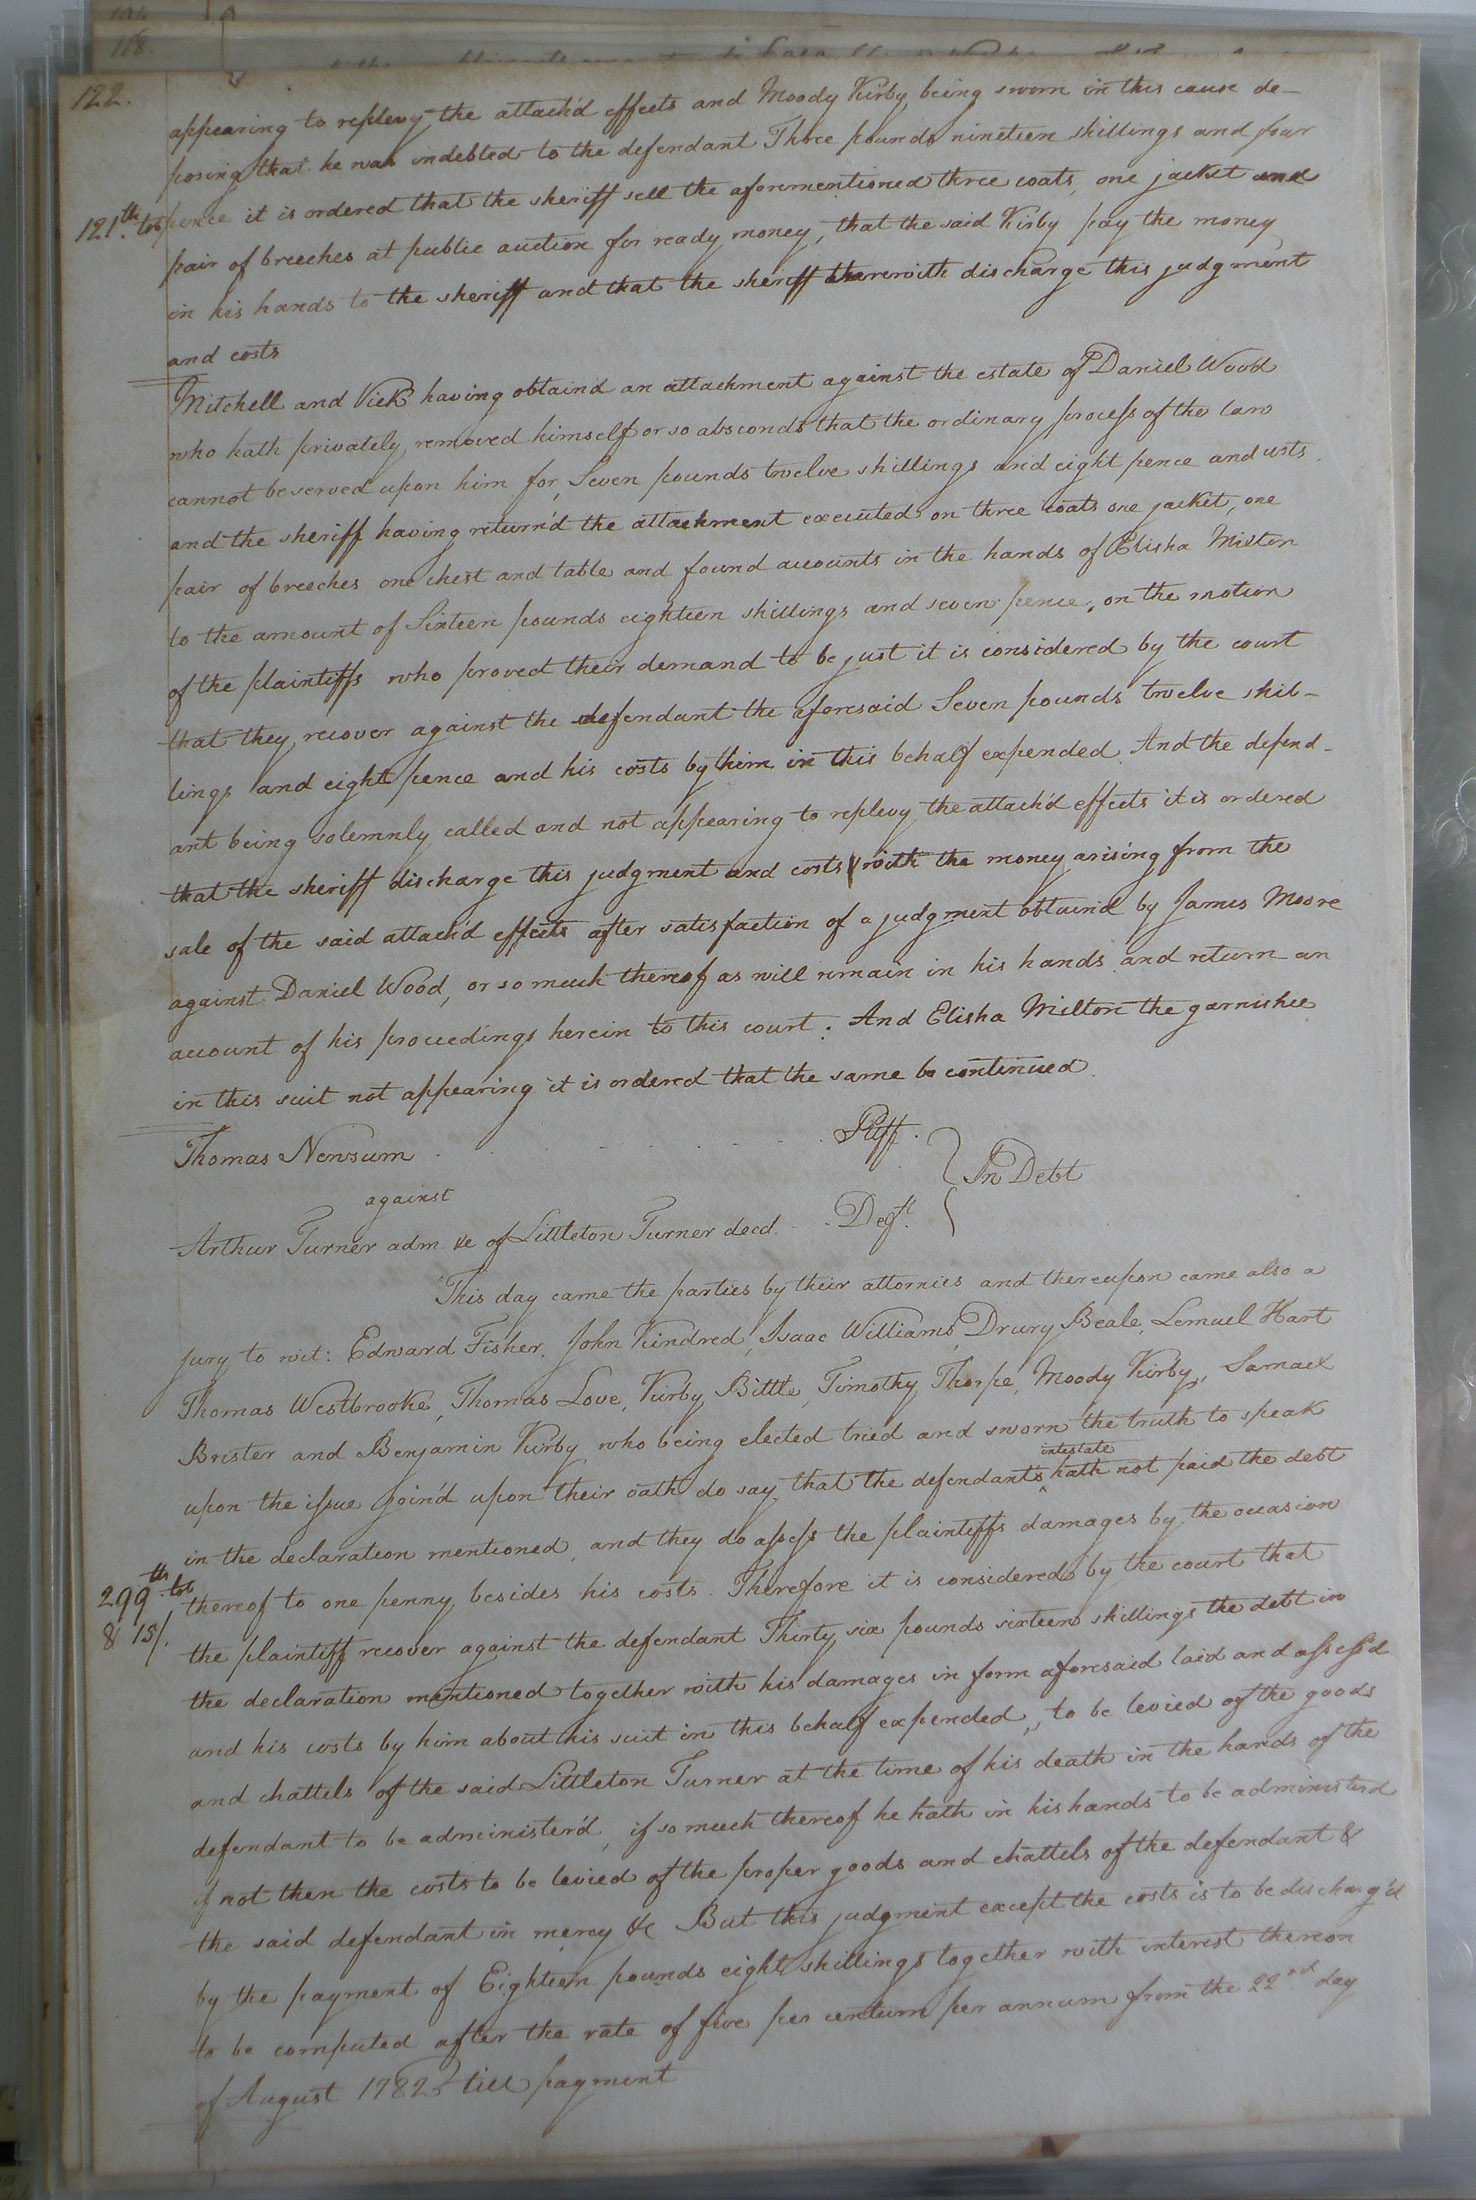 118.
122.
appearing to replevy the attach'd effects and Moody Kirby being sworn in this cause de-
posing that he was indebted to the defendant Three pounds nineteen shillings and four
121th tob pence it is ordered that the sheriff sell the aforementioned three coats, one jacket and
pair of breeches at public auction for ready money, that the said Kirby pay the money
in his hands to the sheriff and that the sheriff therewith discharge this judgment
and costs
Mitchell and Vick having obtaind an attachment against the estate of Daniel Wood
who hath privately removed himself or so absconds that the ordinary process of the law
cannot be served upon him for Seven pounds twelve shillings and eight pence and costs
and the sheriff having return'd the attachment executed on three coats one jacket, one
pair of breeches one chest and table and found accounts in the hands of Elisha Milton
to the amount of Sixteen pounds eighteen shillings and seven pence, on the motion
of the plaintiffs who proved their demand to be just it is considered by the court
that they recover against the defendant the aforesaid Seven pounds twelve shil-
lings and eight pence and his costs by him in this behalf expended. And the defend-
ant being solemnly called and not appearing to replevy the attach'd effects it is ordered
that the sheriff discharge this judgment and costs with the money arising from the
sale of the said attach'd effects after satisfaction of a judgment obtain'd by James Moore
against Daniel Wood, or so much thereof as will remain in his hands and return an
account of his proceedings herein to this court. And Elisha Milton the garnishee
in this suit not appearing it is ordered that the same be continued.
Thomas Newsum Pltff.
against In Debt
Arthur Turner adm. &c of Littleton Turner decd. Deft.
This day came the parties by their attornies and thereupon came also a
jury to wit: Edward Fisher, John Kindred, Isaac Williams, Drury Beale, Lemuel Hart
Thomas Westbrooke, Thomas Love, Kirby Bittle, Timothy Thorpe, Moody Kirby, Samuel
Brister and Benjamin Kirby who being elected tried and sworn the truth to speak
upon the issue join'd upon their oath do say that the defendants intestate hath not paid the debt
in the declaration mentioned, and they do assess the plaintiffs damages by the occasion
299th tob thereof to one penny besides his costs. Therefore it is considered by the court that
8 15/. the plaintiff recover against the defendant Thirty six pounds sixteen shillings the debt in
the declaration mentioned together with his damages in form aforesaid laid and assess'd
and his costs by him about his suit in this behalf expended, to be levied of the goods
and chattels of the said Littleton Turner at the time of his death in the hands of the
defendant to be administer'd, if so much thereof he hath in his hands to be administerd
if not then the costs to be levied of the proper goods and chattels of the defendant &
the said defendant in mercy &c But this judgment except the costs is to be discharg'd
by the payment of Eighteen pounds eight shillings together with interest thereon
to be computed after the rate of five per centum per annum from the 22nd day
of August 1782 till payment